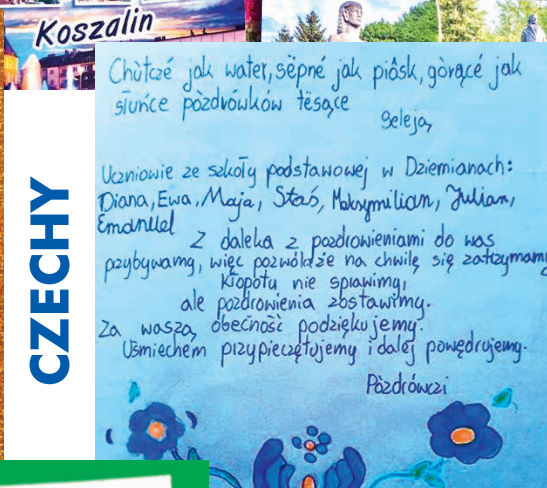 Koszalin
CZECHY
Chùtczé jak water, sëpné jak piôsk, gòrącé jak
słuńce pòzdrówków tësące
Seleją
Uczniowie ze szkoły podstawowej w Dziemianach:
Diana, Ewa, Maja, Staś, Maksymilian, Julian,
Emanuel
Z daleka z pozdrowieniami do was
przybywamy, więc pozwólcie na chwilę się zatrzymamy
Kłopotu nie sprawimy,
ale pozdrowienia zostawimy.
Za waszą obecność podziękujemy.
Uśmiechem przypieczętujemy i dalej powędrujemy.
Pòzdrówczi